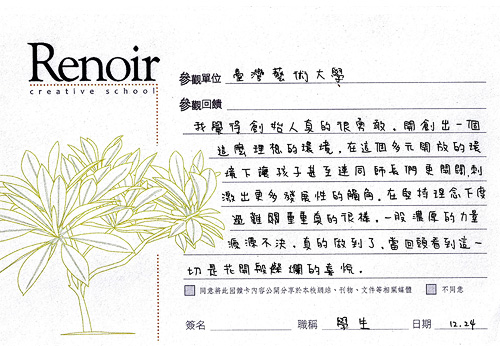 Renoir
creative school
參觀單位 臺灣藝術大學
參觀回饋
我覺得創始人真的很勇敢,開創出一個
這麼理想的環境,在這個多元開放的環
境下讓孩子甚至連同師長們更間間刺
激出更多發展性的觸角,在堅持理念下度
過難關重重真的很棒,一股濃厚的力量
源源不決,真的做到了,當回頭看到這一
切是花開般燦爛的喜悅。
同意將此回饋卡內容公開分享於本校網站、刊物、文件等相關媒體 不同意
簽名 職稱 學生 日期 12.24